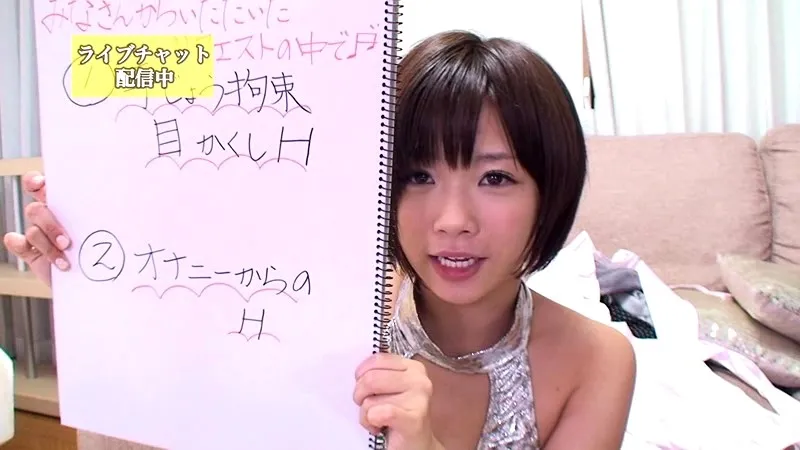 みなさんからいただいた
エストの中で♪
ライブチャット
配信中
① じょう拘束
目かくしH
② オナニーからの
H